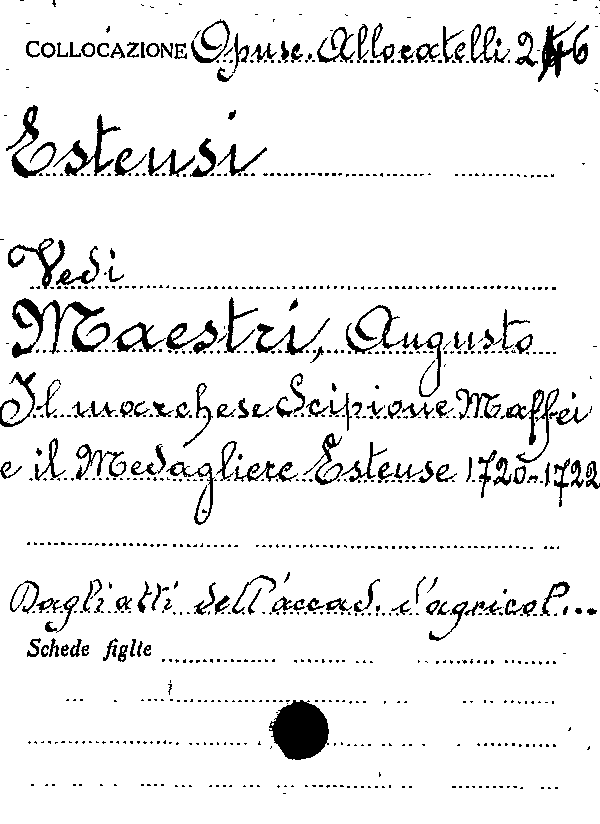 COLLOCAZIONE Opusc. Allocatelli 246
Estensi
Vedi
Maestri, Augusto
Il marchese Scipione Maffei
e il Medagliere Estense 1720-1722
Dagli atti dell'accad. d'agricol...
Schede figlie